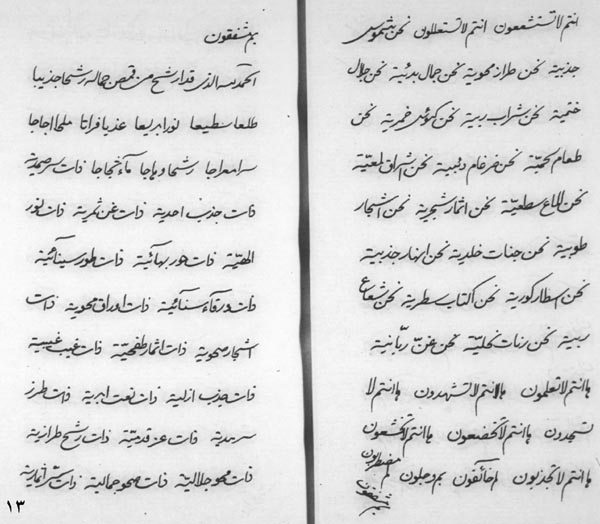 انتم لاتستشعون انتم لاتستعلون نحن شموس
جذبیة نحن طراز محویة نحن جمال بدئیة نحن جلال
ختمیة نحن شراب ربیة نحن کؤس خمریة نحن
طعام لحمیّة نحن ضرغام نحن اشراق لمعیّة
نحن الماع سطعیّة نحن اثمار شجریة نحن اشجار
طوبیة نحن جنات خلدیة نحن انهار جذبیة
نحن اسطار کوریة نحن اکتاب سطریة نحن شعاع
ربیة نحن رنات نحلیّة نحن عزّ ربّانیة
ها انتم لاتعلمون ها انتم لاتشهدون ها انتم لا
تسجدون ها انتم لاتخضعون ها انتم لاتخشعون
ها انتم لاتجذبون لم خائفون بم وجلون لم مضطربون
بم مشفقون
بم مشفقون
الحمد لله الذی قد ارشح من قمص جماله رشحا جذیبا
طلعا سطیعا نورا عذبا فراتا ملحا اجاجا
رشحا وهاجا ماء ثجاجا ذات سر صمدیة
ذات جذب احدیة ذات غن ثمریة ذات نور
الهیّة ذات حور بهائیّة ذات طور سینائیّة
ذات ورقآء سنائیّة ذات اوراق محویة ذات
اشجار صحویة ذات اثمار طفحیّة ذات غیب غیبیة
ذات جذب ازلیة ذات نعت ابدیة ذات طرز
سرمدیة ذات عز قدمیّة ذات رشح طرازیة
ذات محو جلالیة ذات صحو جمالیة ذات سر
۱۳